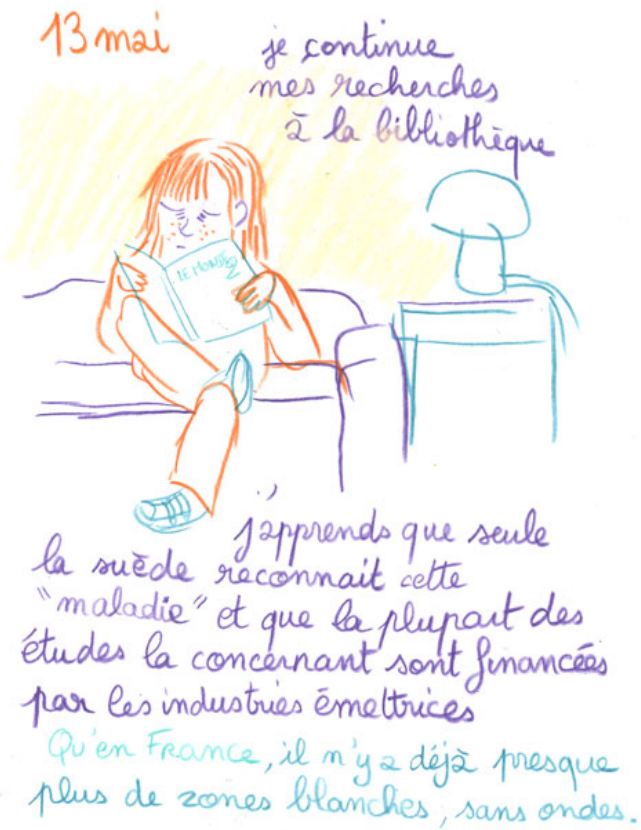 13 mai
je continue
mes recherches
à la bibliothèque
LE MONSTRE
j'apprends que seule
la suède reconnait cette
"maladie" et que la plupart des
études la concernant sont financées
par les industries émettrices
Qu'en France, il n'y a déjà presque
plus de zones blanches, sans ondes.